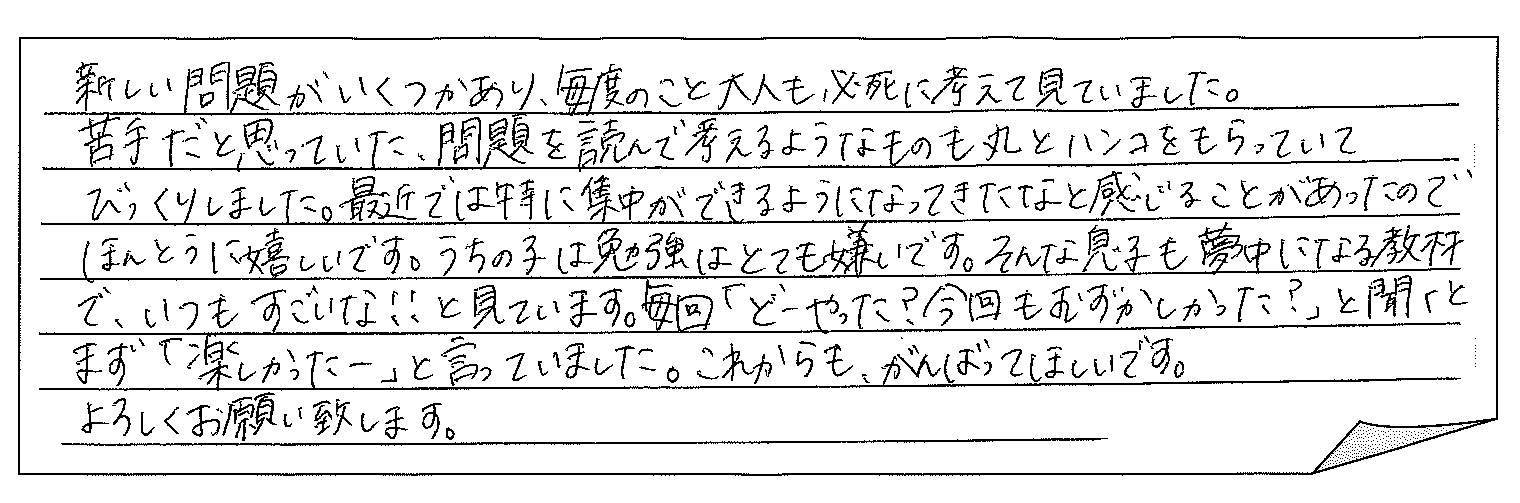 新しい問題がいくつかあり、毎度のこと大人も必死に考えて見ていました。
苦手だと思っていた、問題を読んで考えるようなものも丸とハンコをもらっていて
びっくりしました。最近では特に集中ができるようになってきたなと感じることがあったので
ほんとうに嬉しいです。うちの子は勉強はとても嫌いです。そんな息子も夢中になる教材
で、いつもすごいな!!と見ています。毎回「どーやった?今回もむずかしかった?」と聞くと
まず「楽しかったー」と言っていました。これからも、がんばってほしいです。
よろしくお願い致します。